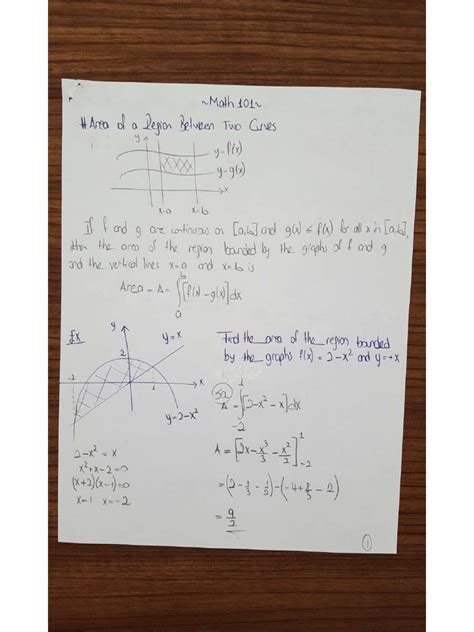 ~Math 101~
# Area of a Region Between Two Curves
y
y=f(x)
y=g(x)
x
x=a x=b
If f and g are continuous on [a,b] and g(x) ≤ f(x) for all x in [a,b],
then the area of the region bounded by the graphs of f and g
and the vertical lines x=a and x=b is
Area = A = ∫_a^b [f(x) - g(x)] dx
Ex
y
y=x
2
-2
1
x
y=2-x²
2-x² = x
x²+x-2=0
(x+2)(x-1)=0
x=1 x=-2
Find the area of the region bounded
by the graphs f(x) = 2-x² and y=x
A = ∫_-2^1 [2-x²-x] dx
A = [2x - x³/3 - x²/2]_-2^1
= (2 - 1/3 - 1/2) - (-4 + 8/3 - 2)
= 9/2
1